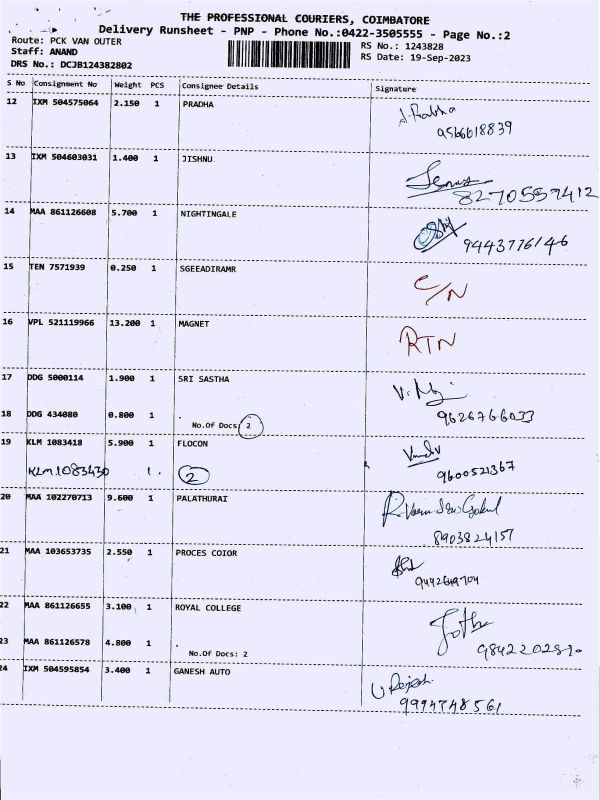 THE PROFESSIONAL COURIERS, COIMBATORE
Delivery Runsheet - PNP - Phone No.:0422-3505555 - Page No.:2
Route: PCK VAN OUTER
RS No.: 1243828
Staff: ANAND
RS Date: 19-Sep-2023
DRS No.: DCJB124382802
S No Consignment No Weight PCS Consignee Details Signature
12 IXM 504575064 2.150 1 PRADHA
9566618839
13 IXM 504603031 1.400 1 JISHNU
8270557412
14 MAA 861126608 5.700 1 NIGHTINGALE
9443776146
15 TEN 7571939 0.250 1 SGEEADIRAMR C/N
16 VPL 521119966 13.200 1 MAGNET RTN
17 DDG 5000114 1.900 1 SRI SASTHA
18 DDG 434080 0.800 1 . No.Of Docs: 2 9626766033
19 KLM 1083418 5.900 1 FLOCON
KLM1083430 1. 2 9600521367
20 MAA 102270713 9.600 1 PALATHURAI
8903824157
21 MAA 103653735 2.550 1 PROCES COIOR
22 MAA 861126655 3.100 1 ROYAL COLLEGE
23 MAA 861126578 4.800 1 . No.Of Docs: 2
24 IXM 504595854 3.400 1 GANESH AUTO U Rajesh
9994748561